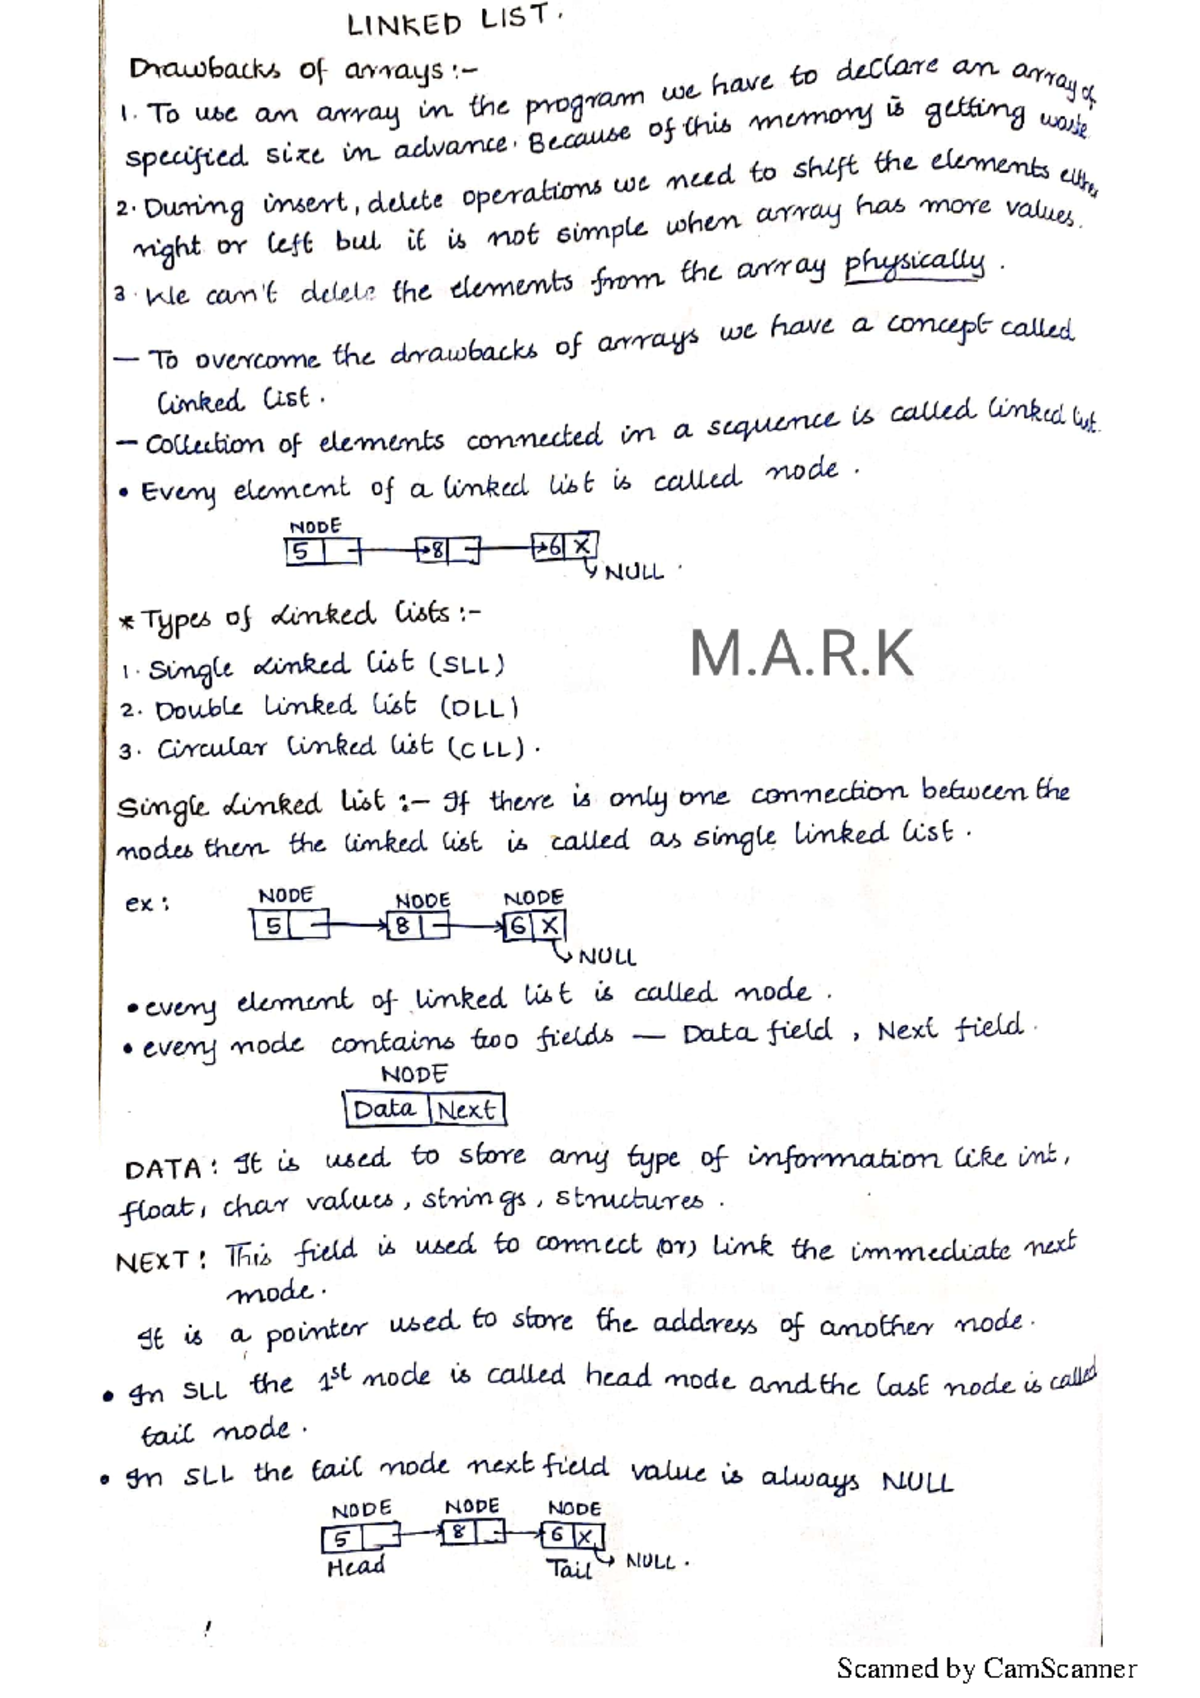 LINKED LIST.
Drawbacks of arrays :-
1. To use an array in the program we have to declare an array of
specified size in advance. Because of this memory is getting waste
2. During insert, delete operations we need to shift the elements either
right or left but it is not simple when array has more values.
3. We can't delete the elements from the array physically.
— To overcome the drawbacks of arrays we have a concept called
linked list.
— Collection of elements connected in a sequence is called linked list.
• Every element of a linked list is called node.
NODE
5 8 6 X
NULL.
* Types of Linked lists :-
M.A.R.K
1. Single Linked list (SLL)
2. Double Linked list (DLL)
3. Circular linked list (CLL).
Single Linked list :- If there is only one connection between the
nodes then the linked list is called as single linked list.
ex: NODE NODE NODE
5 8 6 X
NULL
• every element of linked list is called node.
• every node contains two fields — Data field, Next field.
NODE
Data Next
DATA: It is used to store any type of information like int,
float, char values, strings, structures.
NEXT: This field is used to connect (or) link the immediate next
node.
It is a pointer used to store the address of another node.
• In SLL the 1st node is called head node and the last node is called
tail node.
• In SLL the tail node next field value is always NULL
NODE NODE NODE
5 8 6 X
Head Tail NULL.
Scanned by CamScanner